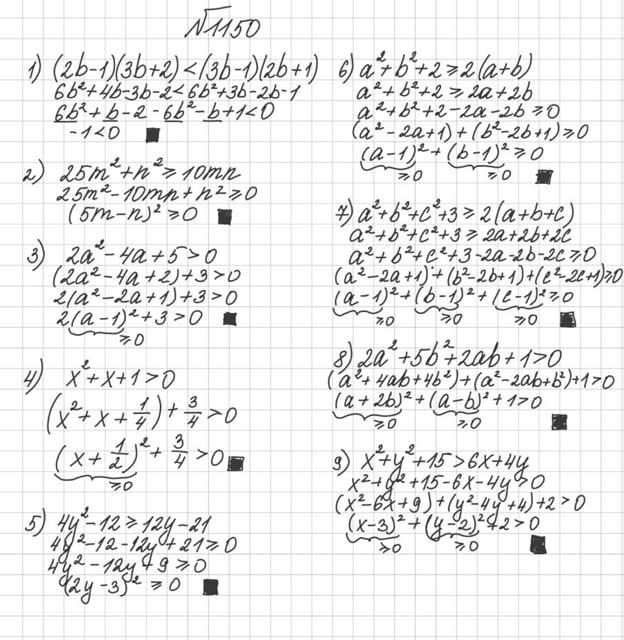 №1150
1) (2b-1)(3b+2)<(3b-1)(2b+1)
6b²+4b-3b-2<6b²+3b-2b-1
6b²+b-2-6b²-b+1<0
-1<0 ■
2) 25m²+n²≥10mn
25m²-10mn+n²≥0
(5m-n)²≥0 ■
3) 2a²-4a+5>0
(2a²-4a+2)+3>0
2(a²-2a+1)+3>0
2(a-1)²+3>0 ■
≥0
4) x²+x+1>0
(x²+x+1/4)+3/4>0
(x+1/2)²+3/4>0 ■
≥0
5) 4y²-12≥12y-21
4y²-12-12y+21≥0
4y²-12y+9≥0
(2y-3)²≥0 ■
6) a²+b²+2≥2(a+b)
a²+b²+2≥2a+2b
a²+b²+2-2a-2b≥0
(a²-2a+1)+(b²-2b+1)≥0
(a-1)²+(b-1)²≥0
≥0 ≥0 ■
7) a²+b²+c²+3≥2(a+b+c)
a²+b²+c²+3≥2a+2b+2c
a²+b²+c²+3-2a-2b-2c≥0
(a²-2a+1)+(b²-2b+1)+(c²-2c+1)≥0
(a-1)²+(b-1)²+(c-1)²≥0
≥0 ≥0 ≥0 ■
8) 2a²+5b²+2ab+1>0
(a²+4ab+4b²)+(a²-2ab+b²)+1>0
(a+2b)²+(a-b)²+1>0
≥0 ≥0 ■
9) x²+y²+15>6x+4y
x²+y²+15-6x-4y>0
(x²-6x+9)+(y²-4y+4)+2>0
(x-3)²+(y-2)²+2>0
≥0 ≥0 ■